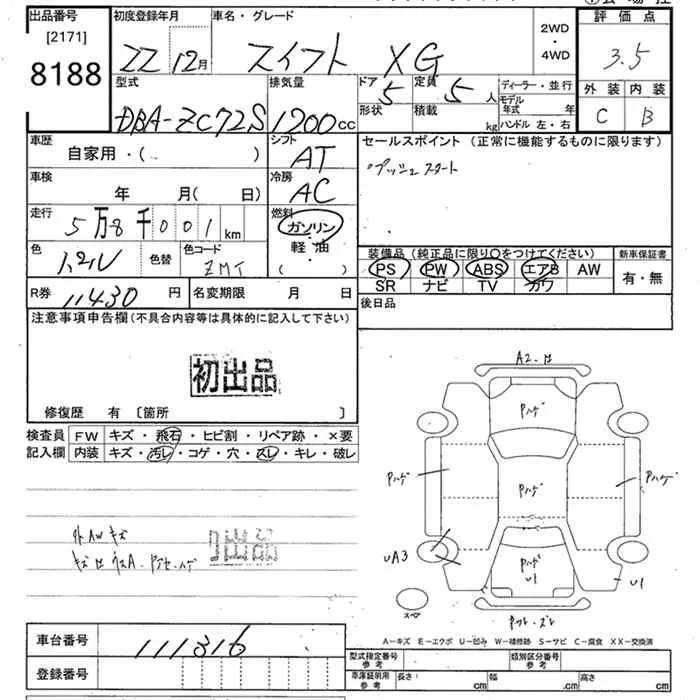 出品番号 初度登録年月 車名・グレード 2WD・4WD 評価点
[2171]
8188
22 12月 スイフト XG 3.5
型式 排気量 ドア 5 定員 5人 ディーラー・並行 外装 内装
形状 積載 kg モデル年式 年 C B
DBA-ZC72S 1200cc ハンドル 左・右
車歴 シフト セールスポイント(正常に機能するものに限ります)
自家用・( ) AT プッシュスタート
車検 冷房
年 月(日) AC
走行 燃料
5万8千001km ガソリン
軽・油
( )
色 色替 色コード 装備品(純正品に限り○をつけてください) 新車保証書
ZMT PS PW ABS エアB AW 有・無
SR ナビ TV カワ
R券 11430円 名変期限 月 日 後日品
注意事項申告欄(不具合内容等は具体的に記入して下さい)
初出品
修復歴 有 〔箇所 〕
検査員 FW キズ・飛石・ヒビ割・リペア跡・×要
記入欄 内装 キズ・汚レ・コゲ・穴・スレ・キレ・破レ
外AWキズ
出品
Pハゲ
Pハゲ Pハゲ Pハゲ
UA3 Pハゲ
U1 U1
スペア
A-キズ E-エクボ U-凹み W-補修跡 S-サビ C-腐食 XX-交換済
車台番号 111316
型式指定番号 参考 類別区分番号 参考
登録番号
車庫証明用 参考 長さ: cm 幅 cm 高さ cm